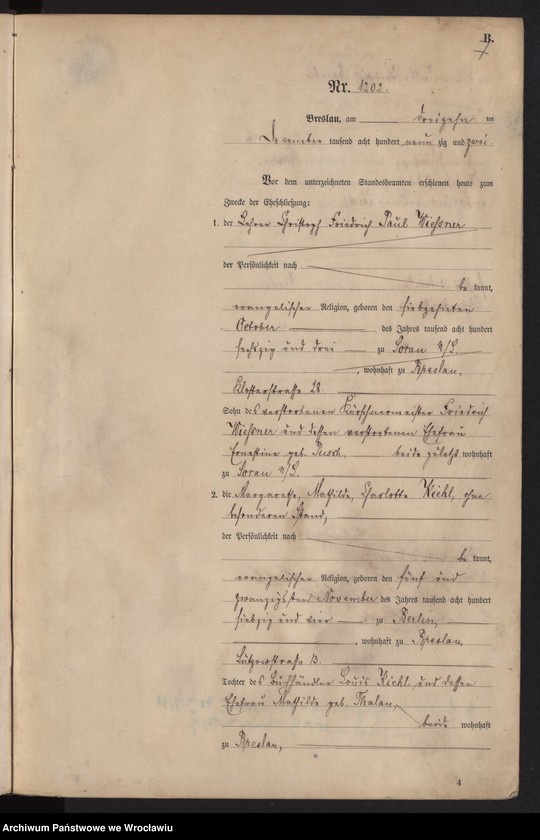 B.
Nr. 1202.
Breslau, am dreizehn ten
December tausend acht hundert neun zig und zwei.
Vor dem unterzeichneten Standesbeamten erschienen heute zum
Zwecke der Eheschließung:
1. der Lehrer Christoph Friedrich Paul Wießner
der Persönlichkeit nach
be kannt,
evangelischer Religion, geboren den siebzehnten
October des Jahres tausend acht hundert
sechzig und drei zu Sorau N/L.
, wohnhaft zu Breslau,
Klosterstraße 28.
Sohn des verstorbenen Kürschnermeister Friedrich
Wießner und dessen verstorbenen Ehefrau
Ernestine geb. beide zuletzt wohnhaft
zu Sorau N/L.
2. die Margarethe, Mathilde, Charlotte Kiehl, ohne
besonderen Stand,
der Persönlichkeit nach
be kannt,
evangelischer Religion, geboren den fünf und
zwanzigsten November des Jahres tausend acht hundert
siebzig und vier zu Berlin,
, wohnhaft zu Breslau
Lützowstraße 13.
Tochter des Buchhändler Louis Kiehl und dessen
Ehefrau Mathilde geb. Thalan,
beide wohnhaft
zu Breslau,
4
Archiwum Państwowe we Wrocławiu